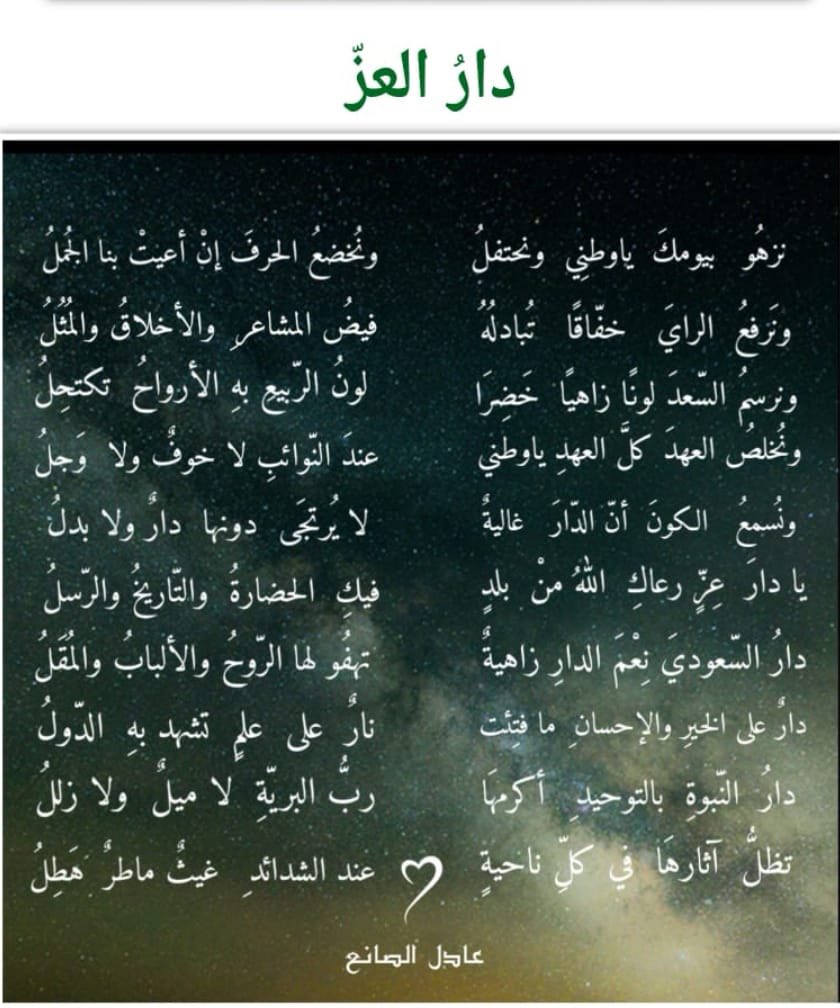 دارُ العزّ
نزهُو بيومكَ ياوطنِي ونحتفلُ ونُخضعُ الحرفَ إنْ أعيتْ بنا الجُملُ
ونَرفعُ الرايَ خفّاقًا تُبادلُهُ فيضُ المشاعرِ والأخلاقُ والمُثُلُ
ونرسمُ السّعدَ لونًا زاهيًا خَضِرَا لونُ الرّبيعِ بهِ الأرواحُ تكتحِلُ
ونُخلصُ العهدَ كلَّ العهدِ ياوطني عندَ النّوائبِ لا خوفٌ ولا وَجلُ
ونُسمعُ الكونَ أنّ الدّارَ غاليةٌ لا يُرتجَى دونها دارٌ ولا بدلُ
يا دارَ عِزٍّ رعاكِ اللهُ منْ بلدٍ فيكِ الحضارةُ والتّاريخُ والرّسلُ
دارُ السّعوديَ نِعْمَ الدارِ زاهيةٌ تهفُو لها الرّوحُ والألبابُ والمُقَلُ
دارٌ على الخيرِ والإحسانِ ما فتِئت نارٌ على علمٍ تشهد بهِ الدّولُ
دارُ النّبوةِ بالتوحيدِ أكرمهَا ربُّ البريّةِ لا ميلٌ ولا زللُ
تظلُّ آثارهَا في كلِّ ناحيةٍ عند الشدائدِ غيثٌ ماطرٌ هَطِلُ
عادل الصانع